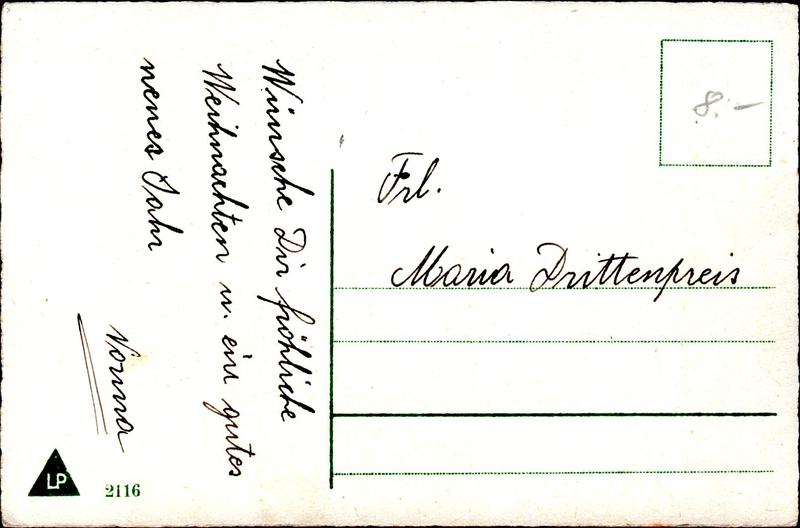 Wünsche Dir fröhliche
Weihnachten u. ein gutes
neues Jahr
Norma
Frl.
Maria Drittenpreis
8.-
LP
2116